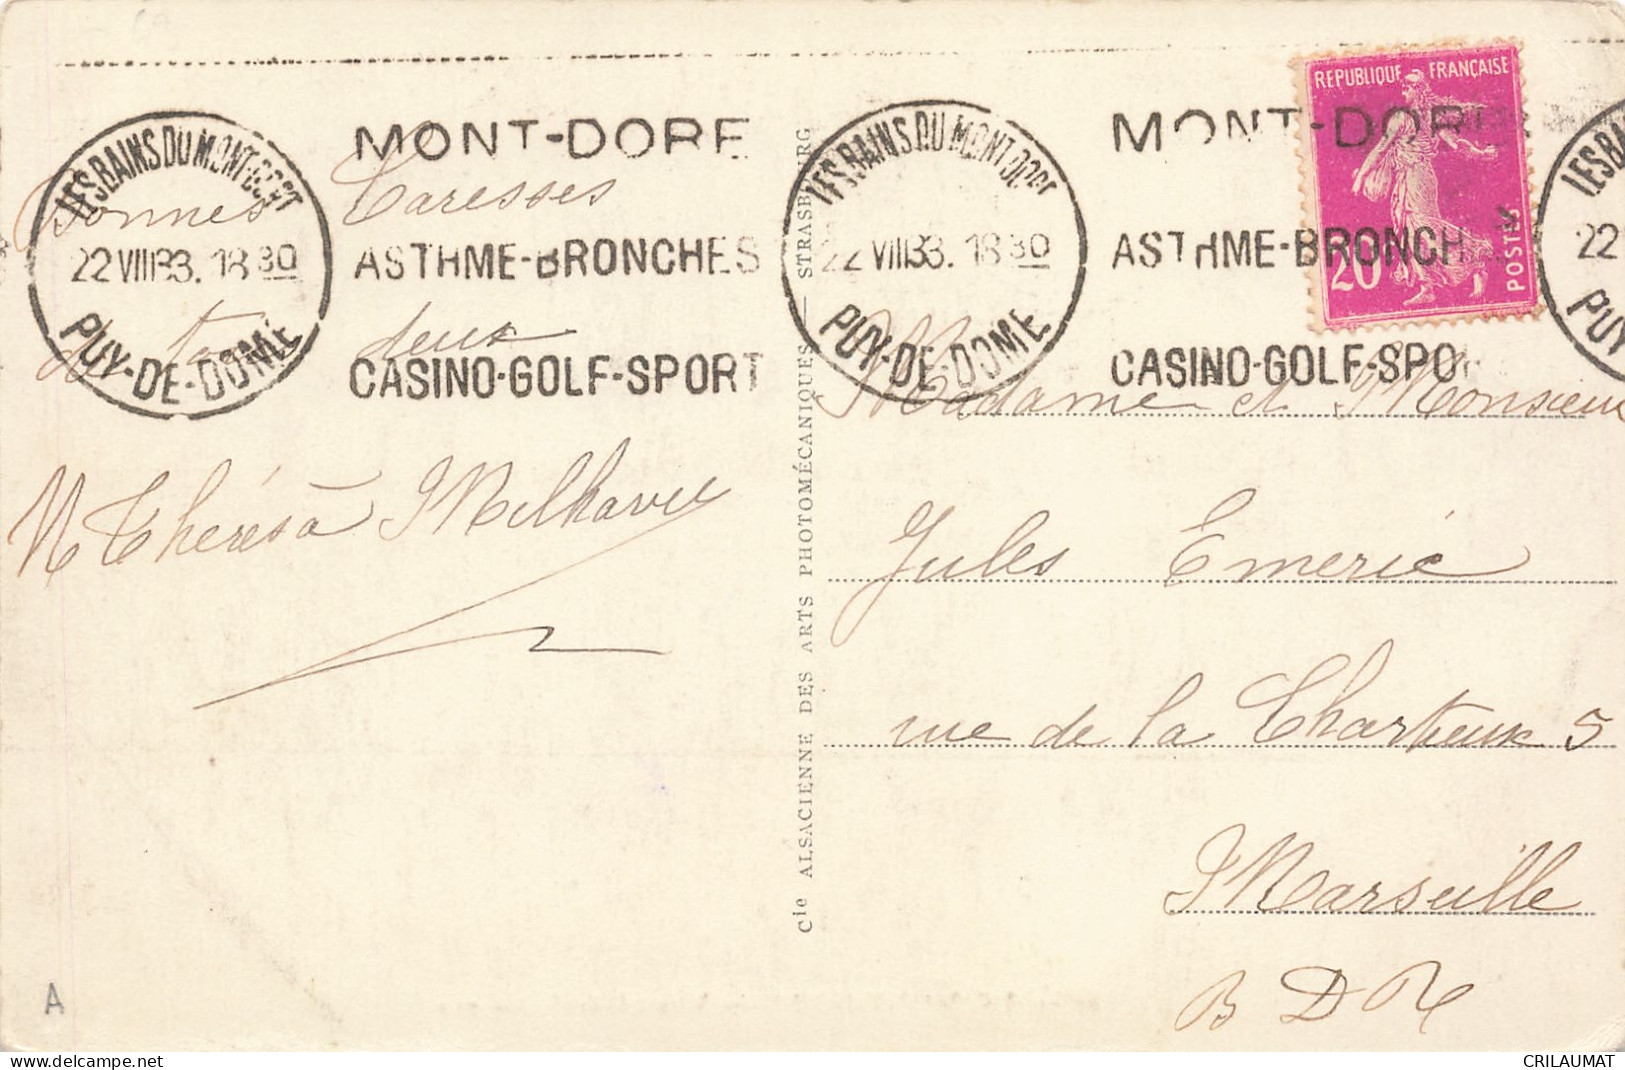 LES BAINS DU MONT-DORE
22 VIII 33. 18 30
PUY-DE-DOME
MONT-DORE
ASTHME-BRONCHES
CASINO-GOLF-SPORT
LES BAINS DU MONT-DORE
22 VIII 33. 18 30
PUY-DE-DOME
MONT-DORE
ASTHME-BRONCH
CASINO-GOLF-SPO
REPUBLIQUE FRANÇAISE
20
POSTES
LES BAIN
22
PUY
Bonnes Caresses
à tous deux
Thérésa Milhavet
Cie ALSACIENNE DES ARTS PHOTOMÉCANIQUES — STRASBOURG
Madame et Monsieur
Jules Emeric
rue de la Chartreux 5
Marseille
B D R
A
www.delcampe.net
CRILAUMAT